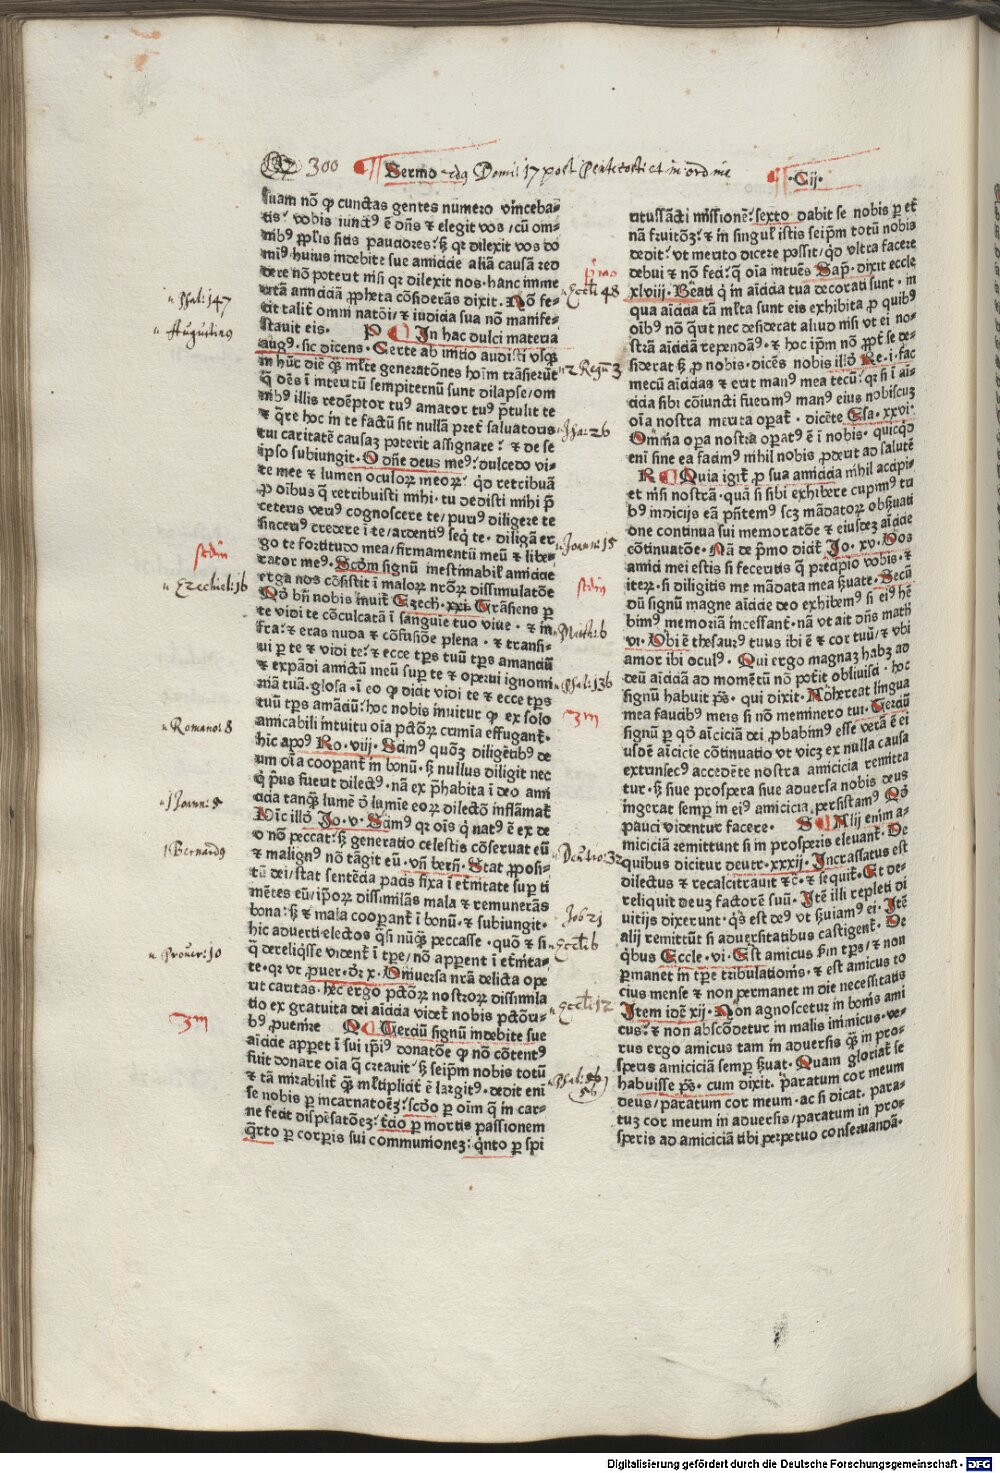 300 Sermo 2dus Domi: 17 post Pentecostes et in ordine
·Cij·
suam nõ ꝙ cunctas gentes numero vinceba-
tis? vobis iunctꝰ ẽ dñs ⁊ elegit vos / cũ om-
nibꝰ ppl̃is sitis pauciores? sꝫ qꝛ dilexit vos do
minꝰ huius indebite sue amicicie aliã causã red
dere nõ poterat nisi qꝛ dilexit nos. hanc imme
ritã amiciciã ꝓpheta cõsiderãs dixit. Nõ fe-
cit talit̃ omni natõi / ⁊ iudicia sua nõ manife-
stauit eis. P In hac dulci materia
augꝰ. sic dicens. Certe ab inicio audisti vsqꝫ
in hũc diẽ qꝫ ml̃te generatões hoĩm trãsierũt
q̃ oẽs ĩ interitũ sempiternũ sunt dilapse / om
nibꝰ illis redẽptor tuꝰ amator tuꝰ p̃tulit te
⁊ q̃re hoc in te factũ sit nullã pret̃ saluatoris
tui caritatẽ causaꝫ poterit assignare? ⁊ de se
ipso subiungit. O dñe deus meꝰ? dulcedo vi-
te mee ⁊ lumen oculoꝝ meoꝝ? qd retribuã
ꝓ oĩbus q̃ retribuisti mihi. tu dedisti mihi p̃
ceteris verꝰ cognoscere te / puriꝰ diligere te
sincerꝰ credere ĩ te / ardentiꝰ seq̃ te. diligã er
go te fortitudo mea / firmamentũ meũ ⁊ libe-
rator meꝰ. Scðm signũ inestimabil̃ amicicie
erga nos cõsistit ĩ maloꝝ nr̃oꝝ dissimulatõe
Qð bñ nobis inuit Ezech. xxi. Trãsiens ꝑ
te vidi te cõculcatã ĩ sanguie tuo viue. ⁊ in
fra? ⁊ eras nuda ⁊ cõfusiõe plena. ⁊ transi-
ui ꝑ te ⁊ vidi te? ⁊ ecce tꝑs tuũ tꝑs amanciũ
⁊ expãdi amictũ meũ suꝑ te ⁊ operui ignomi
niã tuã. glosa. ĩ eo ꝙ dicit vidi te ⁊ ecce tꝑs
tuũ tꝑs amãciũ? hoc nobis inuitur ꝙ ex solo
amicabili intuitu oĩa pctõꝝ crimĩa effugant̃.
hic apoꝰ Ro. viij. Scimꝰ quõꝫ diligẽtibꝰ de
um oĩa cooꝑant̃ in bonũ. sꝫ nullus diligit nec
q̃ pꝰus fuerit dilectꝰ. nã ex p̃habita ĩ deo ami
cicia tanqꝫ lumẽ ð lumĩe eoꝝ dilectõ inflãmat̃
Hĩc illð Jo. v. Scimꝰ qꝛ oĩs q̃ natꝰ ẽ ex de
o nõ peccat? sꝫ generatio celestis cõseruat eũ
⁊ malignꝰ nõ tãgit eũ. vñ berñ. Stat ꝓposi-
tũ dei / stat sentẽcia pacis fixa ĩ et̃nitate suꝑ ti
mẽtes eũ / ipoꝝ dissimilãs mala ⁊ remunerãs
bona? sꝫ ⁊ mala cooꝑant̃ ĩ bonũ. ⁊ subiungit.
hic aduerti electos q̃si nũqꝫ peccasse. quõ ⁊ si
q̃ dereliq̃sse vident̃ ĩ tꝑe / nõ apparent ĩ et̃nita-
te. qꝛ vt ꝓuer. ðr x. Vniuersa nr̃ã delicta oꝑe
rit caritas. hec ergo pctõꝝ nostroꝝ dissimila
tio ex gratuita dei aĩcicia videt̃ nobis pctõri-
bꝰ ꝓuenire Q Terciũ signũ indebite sue
aĩcicie apꝑet ĩ sui ip̃iꝰ donatõe ꝙ nõ cõtentꝰ
fuit donare oĩa q̃ creauit? sꝫ seip̃m nobis totũ
⁊ tã mirabilit̃ qꝫ ml̃tiplicit̃ ẽ largitꝰ. dedit eni
se nobis ꝑ incarnatoẽꝫ? scðo ꝑ oim q̃ in car-
ne fecit dispẽsatõeꝫ? t̃cio ꝑ mortis passionem
q̃rto ꝑ corꝑis sui communioneꝫ? q̃nto ꝑ spi
ritussãcti missionẽ? sexto dabit se nobis ꝑ et̃
nã fruitõꝫ? ⁊ in singul̃ istis seip̃m totũ nobis
dedit? vt merito dicere possit / qð vltra facere
debui ⁊ nõ feci? q̃ oĩa intuẽs Sap̃. dixit eccle
xlviij. Beati q̃ in aĩcicia tua decorati sunt. in
qua aĩcicia tã ml̃ta sunt eis exhibita ꝑ quibꝰ
oĩbꝰ nõ q̃rit nec desiderat aliud nisi vt ei no-
strã aĩciciã rependãꝰ. ⁊ hoc ip̃m nõ ꝓpt̃ se de-
siderat sꝫ ꝓ nobis. dicẽs nobis illð Re. i. fac
mecũ aĩcicias ⁊ erit manꝰ mea tecũ? qꝛ si ĩ aĩ-
cicia sibi cõiuncti fuerimꝰ manꝰ eius nobiscuꝫ
oĩa nostra merita operat̃. dicẽte Esa. xxvi.
Omĩa oꝑa nostra opatꝰ ẽ ĩ nobis. quicqð
eni sine ea facimꝰ nihil nobis ꝓderit ad salutẽ
R Quia igit̃ ꝓ sua amicicia nihil accipi-
et nisi nostrã. quã si sibi exhibere cupimꝰ tri
bꝰ indicijs eã pñtemꝰ scꝫ mãdatoꝝ obẞuati
one continua sui memoratõe ⁊ eiusdeꝫ aĩcicie
cõtinuatõe. Nã de p̃mo dicit̃ Jo. xv. Vos
amici mei estis si feceritis q̃ p̃cipio vobis. ⁊
iteꝝ. si diligitis me mãdata mea ẞuate. Secũ
dũ signũ magne aĩcicie deo exhibemꝰ si eiꝰ hẽ
bimꝰ memoriã incessant̃. nã vt ait dñs math̃
vi. Vbi ẽ thesaurꝰ tuus ibi ẽ ⁊ cor tuũ / ⁊ vbi
amor ibi oculꝰ. Qui ergo magnaꝫ habꝫ ad
deũ aĩciciã ad momẽtũ nõ potit obliuisci. hoc
signũ habuit pꝭ̃. qui dixit. Adhereat lingua
mea faucibꝰ meis si nõ meminero tui. Terciũ
signũ ꝑ qð aĩciciã dei ꝓbabimꝰ esse verã ẽ ei
usdẽ aĩcicie cõtinuatio vt vicꝫ ex nulla causa
extrinsecꝰ accedẽte nostra amicicia remitta
tur. sꝫ siue prospera siue aduersa nobis deus
ingerat semꝑ in eiꝰ amicicia persistamꝰ Qð
pauci videntur facere. S Alij enim a-
miciciã remittunt si in prosperis eleuant̃. De
quibus dicitur deutr. xxxij. Incrassatus est
dilectus ⁊ recalcitrauit ⁊c̃. ⁊ sequit̃. Et de-
reliquit deuꝫ factorẽ suũ. Itẽ illi repleti di
uitijs dixerunt. q̃s est deꝰ vt ẞuiamꝰ ei. Itẽ
alij remittũt si aduersitatibus castigent̃. De
q̃bus Eccle. vi. Est amicus ẞm tꝑs / ⁊ non
ꝑmanet in tꝑe tribulatiõnis. ⁊ est amicus so
cius mense ⁊ non permanet in die necessitatis
Item idẽ xij. Non agnoscetur in bonis ami
cus? ⁊ non abscõdetur in malis inimicus. ve-
rus ergo amicus tam in aduersis qꝫ in pro-
speris amiciciã semꝑ ẞuat. Quam gloriat̃ se
habuisse pꝭ̃. cum dixit. paratum cor meum
deus / paratum cor meum. ac si dicat. para-
tuꝫ cor meum in aduersis / paratum in pro-
speris ad amiciciã tibi ꝑpetuo conseruandã.
Psal: 147
Augustinus
Ezechiel: 16
Romanos 8
1 Joann: 5
Bernardꝰ
Prouer: 10
p̃mo
Eccli 48
2 Regũ 3
Isa: 26
Joann: 15
Matth: 6
Psal: 136
Deutro: 32
Job 21
Eccli 6
Eccli: 12
Psal: 56